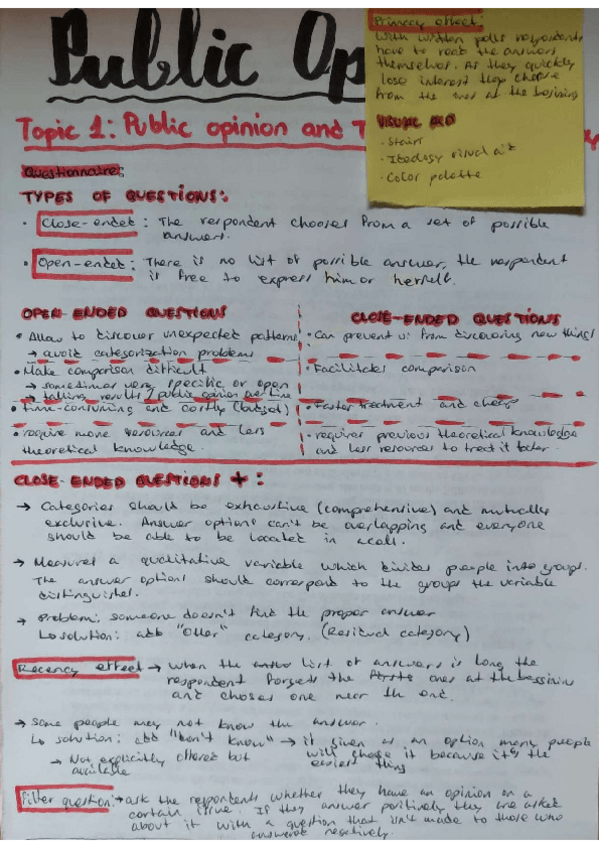 Public Op
Topic 1: Public opinion and T
Primacy effect:
With written polls respondents
have to read the answers
themselves. As they quickly
lose interest they choose
from the ones at the begining
VISUAL AID
· Stairs
· Ideology visual aid
· Color palette
Questionnaire:
TYPES OF QUESTIONS:
· Close-ended: The respondent chooses from a set of possible
answers.
· Open-ended: There is no list of possible answer, the respondent
is free to express him or herself.
OPEN-ENDED QUESTIONS
• Allow to discover unexpected patterns
→ avoid categorization problems
• Make comparison difficult
→ sometimes very specific or open
→ talking results / public opinion
• time-consuming and costly (budget)
• require more resources and less
theoretical knowledge.
CLOSE-ENDED QUESTIONS
• Can prevent us from discovering new things
• Facilitates comparison
• Faster treatment and cheap
• requires previous theoretical knowledge
and less resources to treat it later.
CLOSE-ENDED QUESTIONS + :
→ Categories should be exhaustive (comprehensive) and mutually
exclusive. Answer options can't be overlapping and everyone
should be able to be located in a cell.
→ Measures a qualitative variable which divides people into groups.
The answer options should correspond to the groups the variable
distinguishes.
→ Problem: someone doesn't find the proper answer
↳ solution: add "other" category. (Residual category)
Recency effect → when the list of answers is long the
respondent forgets the ones at the beginning
and choses one near the end.
→ Some people may not know the answer.
↳ solution: add "don't know" → if given as an option many people
will chose it because it's the
easiest thing
→ Not explicitly offered but
available
Filter question: → ask the respondents whether they have an opinion on a
certain issue. If they answer positively they are asked
about it with a question that isn't made to those who
answered negatively.